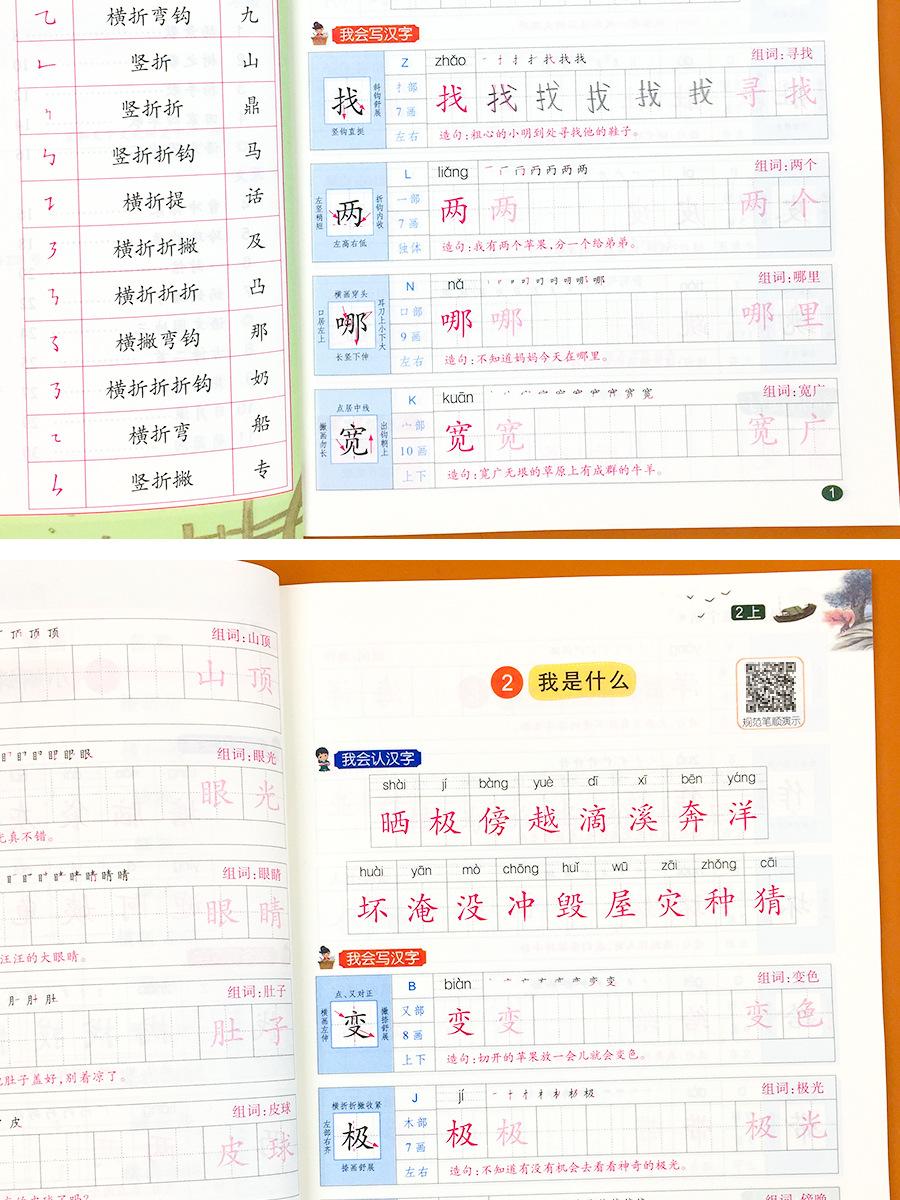 横折弯钩 九
竖折 山
竖折折 鼎
竖折折钩 马
横折提 话
横折折撇 及
横折折折 凸
横撇弯钩 那
横折折折钩 奶
横折弯 船
竖折撇 专
我会写汉字
Z zhǎo 组词:寻找
找 斜钩舒展 竖钩直挺
扌部 7画 左右
找 找 找 找 找 找 寻 找
造句:粗心的小明到处寻找他的鞋子。
L liǎng 组词:两个
两 左竖稍短 折钩内收 左高右低
一部 7画 独体
两 两 两 个
造句:我有两个苹果,分一个给弟弟。
N nǎ 组词:哪里
哪 横画穿头 口居左上 耳刀上小下大 长竖下伸
口部 9画 左右
哪 哪 哪 里
造句:不知道妈妈今天在哪里。
K kuān 组词:宽广
宽 点居中线 撇画勿长 出钩朝上
宀部 10画 上下
宽 宽 宽 广
造句:宽广无垠的草原上有成群的牛羊。
1
顶 顶 顶 组词:山顶
山 顶
组词:眼光
眼 光
光真不错。
组词:眼睛
眼 睛
汪汪的大眼睛。
组词:肚子
肚 子
肚子盖好,别着凉了。
皮 组词:皮球
皮 球
2上
2 我是什么
规范笔顺演示
我会认汉字
shài jí bàng yuè dī xī bēn yáng
晒 极 傍 越 滴 溪 奔 洋
huài yān mò chōng huǐ wū zāi zhǒng cāi
坏 淹 没 冲 毁 屋 灾 种 猜
我会写汉字
B biàn 组词:变色
变 点、又对正 横画左伸 撇捺舒展
又部 8画 上下
变 变 变 色
造句:切开的苹果放一会儿就会变色。
J jí 组词:极光
极 横折折撇收紧 左部右齐 捺画舒展
木部 7画 左右
极 极 极 光
造句:不知道有没有机会去看看神奇的极光。
组词:傍晚